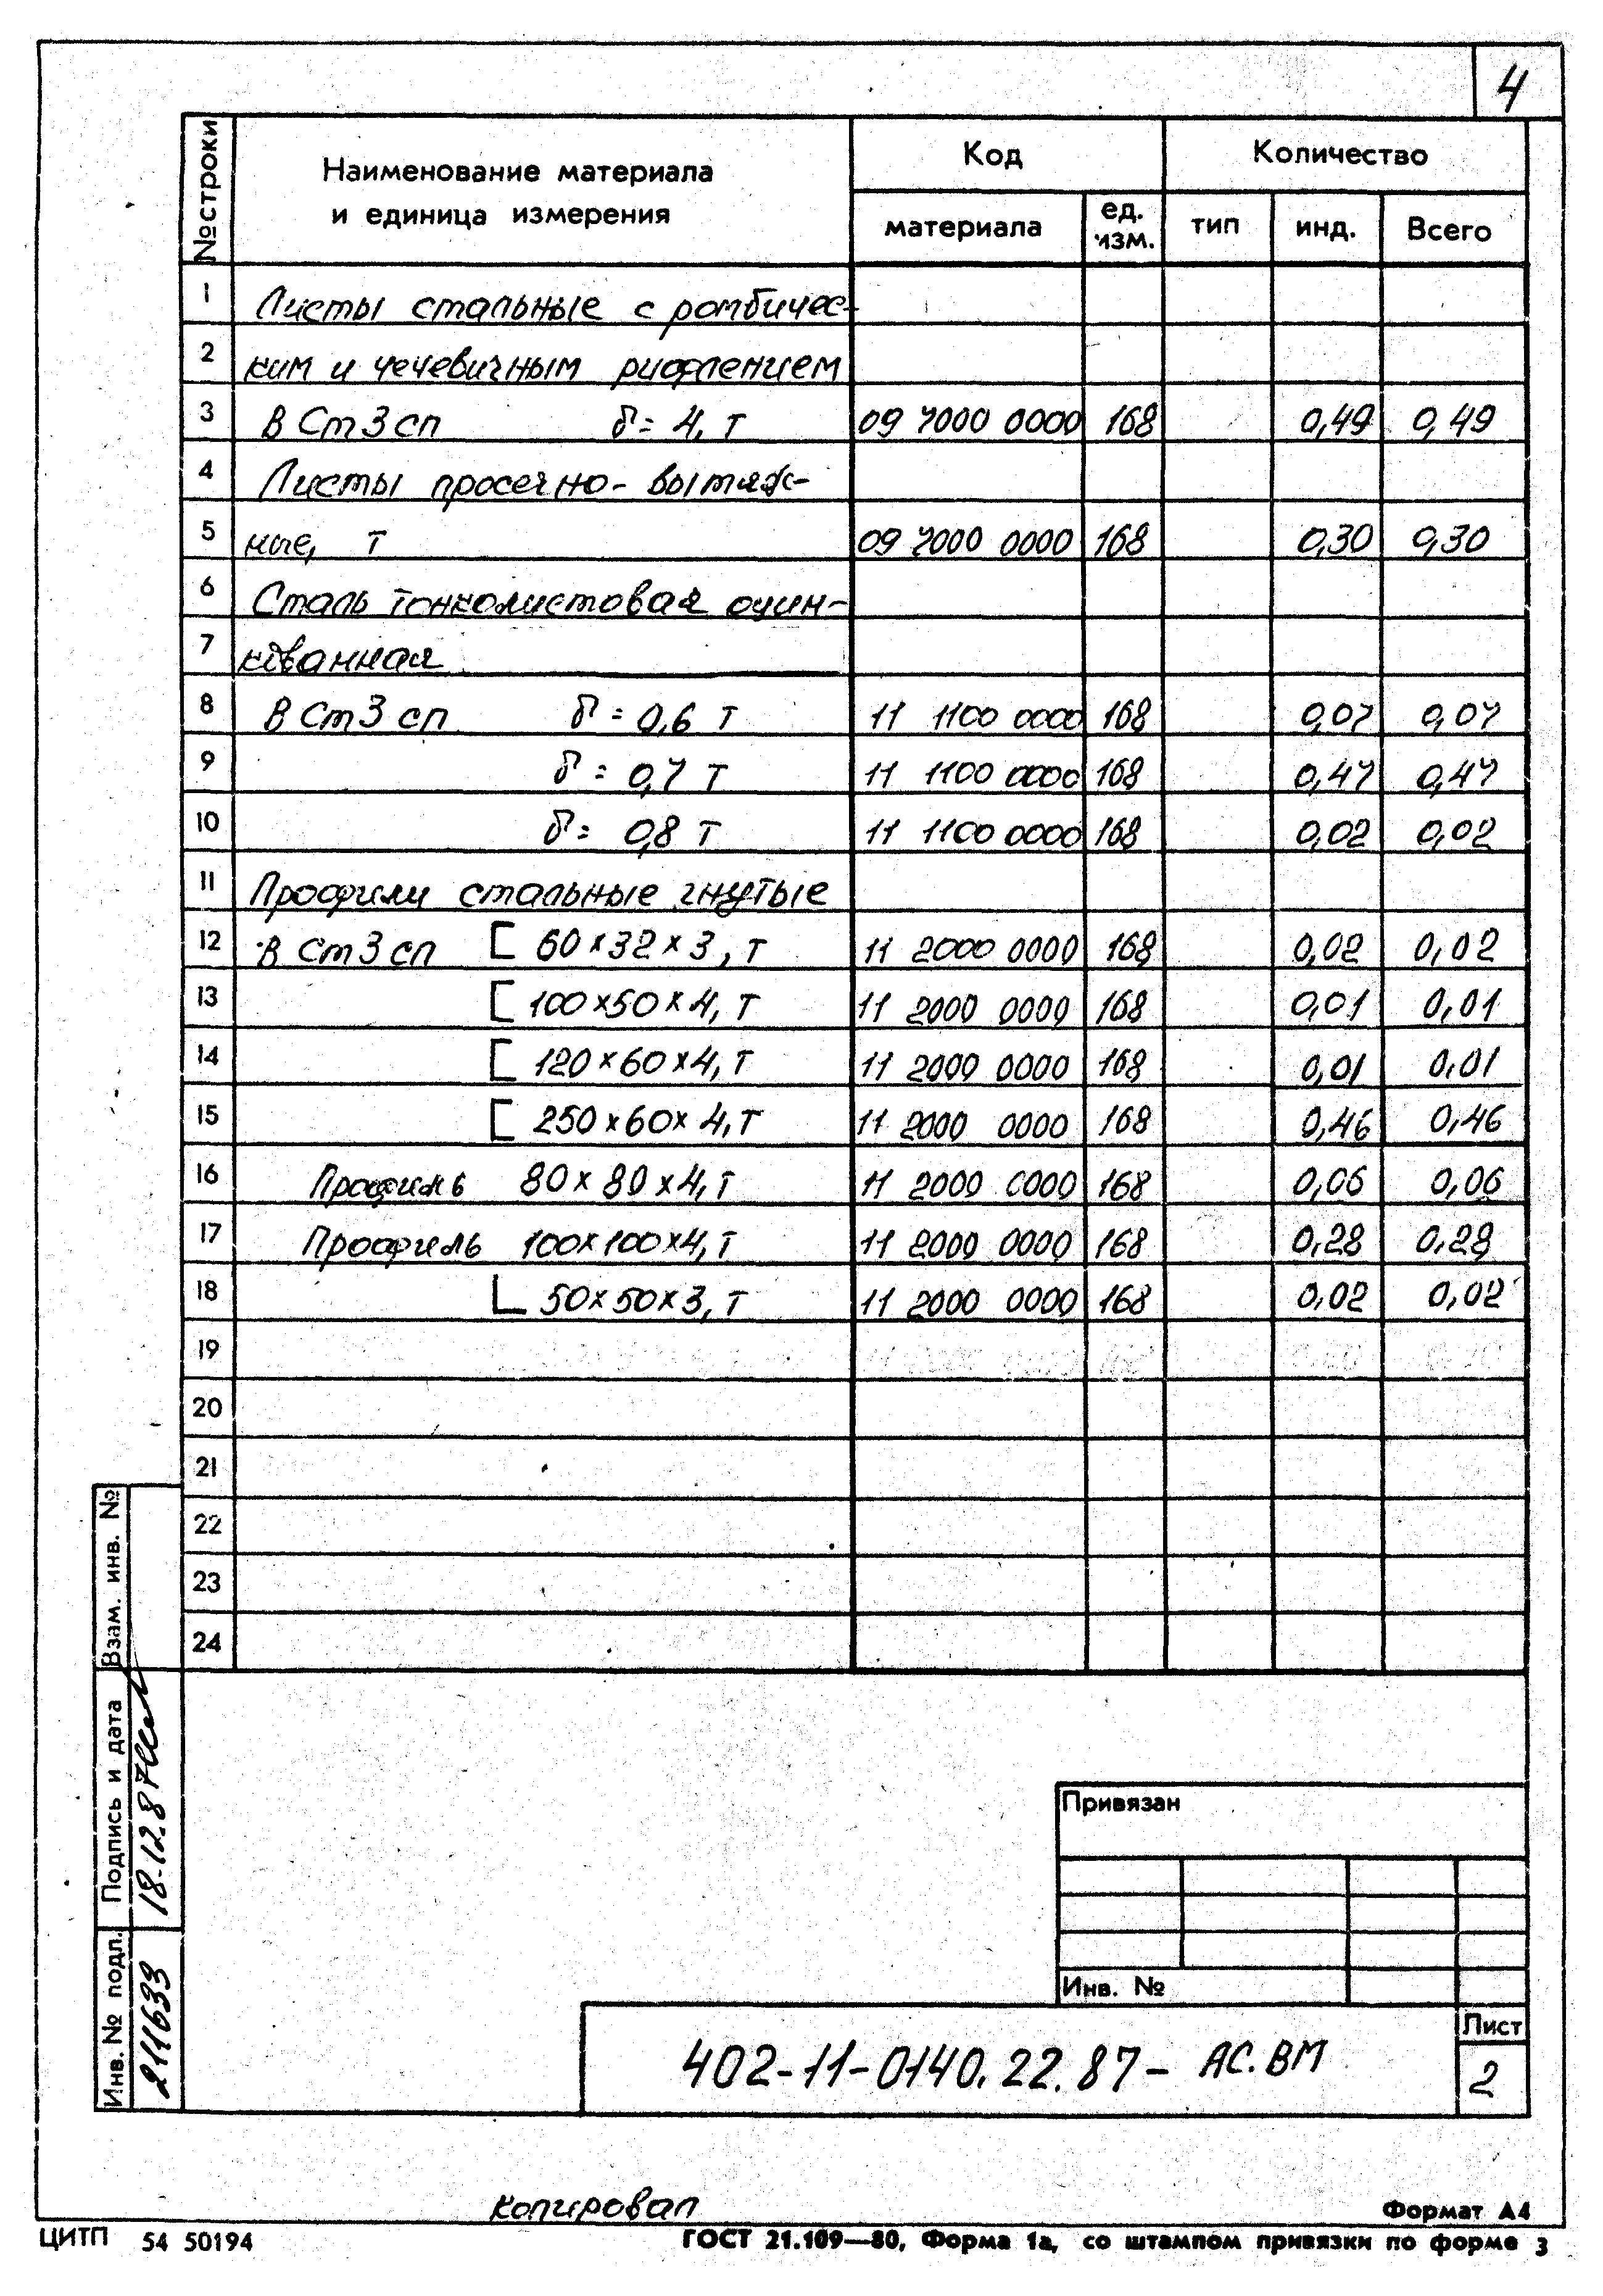 4
№ строки
Наименование материала
и единица измерения
Код
Количество
материала
ед.
изм.
тип
инд.
Всего
1 Листы стальные с ромбичес-
2 ким и чечевичным рифлением
3 В Ст3сп δ= 4, т 09 7000 0000 168 0,49 0,49
4 Листы просечно-вытяж-
5 ные, т 09 7000 0000 168 0,30 0,30
6 Сталь тонколистовая оцин-
7 кованная
8 В Ст3 сп δ = 0,6 т 11 1100 0000 168 0,07 0,07
9 δ = 0,7 т 11 1100 0000 168 0,47 0,47
10 δ = 0,8 т 11 1100 0000 168 0,02 0,02
11 Профили стальные гнутые
12 В Ст3 сп [ 60×32×3, т 11 2000 0000 168 0,02 0,02
13 [ 100×50×4, т 11 2000 0000 168 0,01 0,01
14 [ 120×60×4, т 11 2000 0000 168 0,01 0,01
15 [ 250×60×4, т 11 2000 0000 168 0,46 0,46
16 Профиль 80×80×4, т 11 2000 0000 168 0,06 0,06
17 Профиль 100×100×4, т 11 2000 0000 168 0,28 0,28
18 L 50×50×3, т 11 2000 0000 168 0,02 0,02
19
20
21
22
23
24
Взам. инв. №
Подпись и дата
18.12.87
Инв. № подл.
211633
Привязан
Инв. №
402-11-0140.22.87- АС.ВМ
Лист
2
Копировал
Формат А4
ЦИТП 54 50194
ГОСТ 21.109—80, Форма 1а, со штампом привязки по форме 3